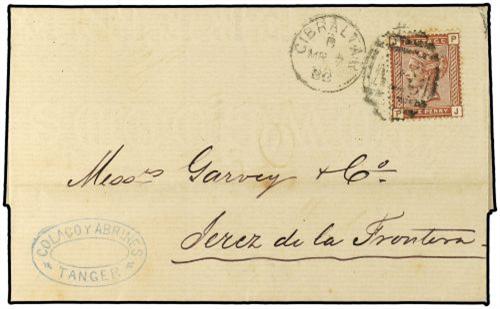 GIBRALTAR
B
MR
P
P J
Mess.rs Garvey & Co.
Jerez de la Frontera
COLAÇO Y ABRINES
TANGER